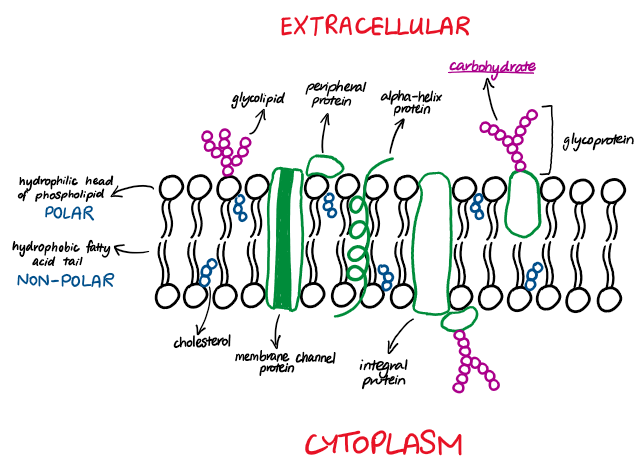 EXTRACELLULAR
carbohydrate
peripheral
protein
glycolipid
alpha-helix
protein
glycoprotein
hydrophilic head
of phospholipid
POLAR
hydrophobic fatty
acid tail
NON-POLAR
cholesterol
membrane channel
protein
integral
protein
CYTOPLASM